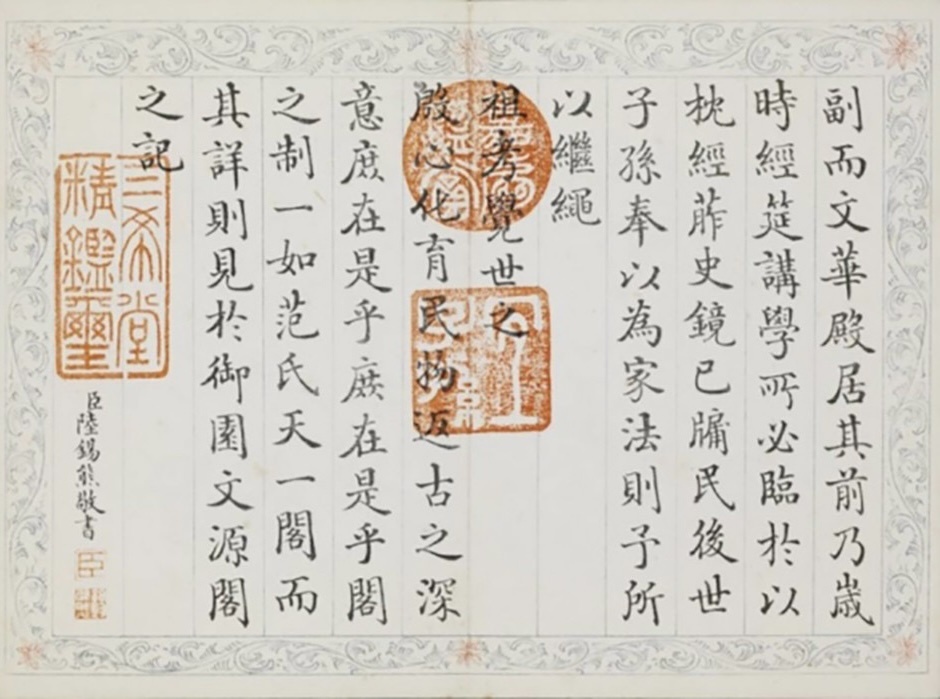 副而文華殿居其前乃歲
時經筵講學所必臨於以
枕經葄史鏡已牖民後世
子孫奉以為家法則予所
以繼繩
祖考覺世之
殷心化育民物返古之深
意庶在是乎庶在是乎閣
之制一如范氏天一閣而
其詳則見於御園文源閣
之記
宜
子孫
三希堂
精鑑璽
臣陸錫熊敬書
臣